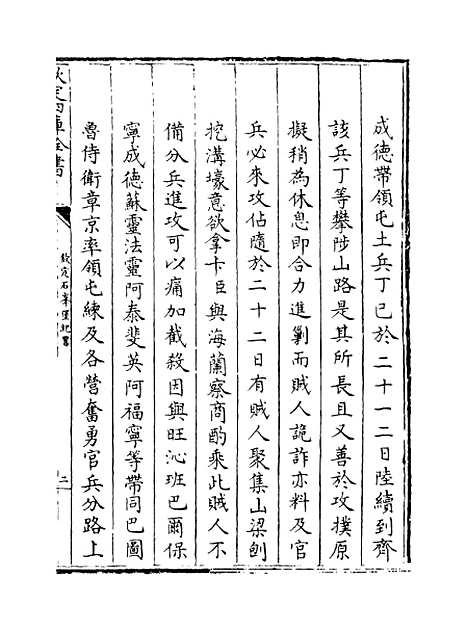 成德帶領屯土兵丁已於二十一二日陸續到齊
該兵丁等攀陟山路是其所長且又善於攻撲原
擬稍為休息即合力進剿而賊人詭詐亦料及官
兵必來攻佔隨於二十二日有賊人聚集山梁刨
挖溝壕意欲拿卡臣與海蘭察商酌乘此賊人不
備分兵進攻可以痛加截殺因與旺沁班巴爾保
寧成德蘇靈法靈阿泰斐英阿福寧等帶同巴圖
魯侍衛章京率領屯練及各營奮勇官兵分路上
欽定四庫全書
欽定石峯堡紀畧
二